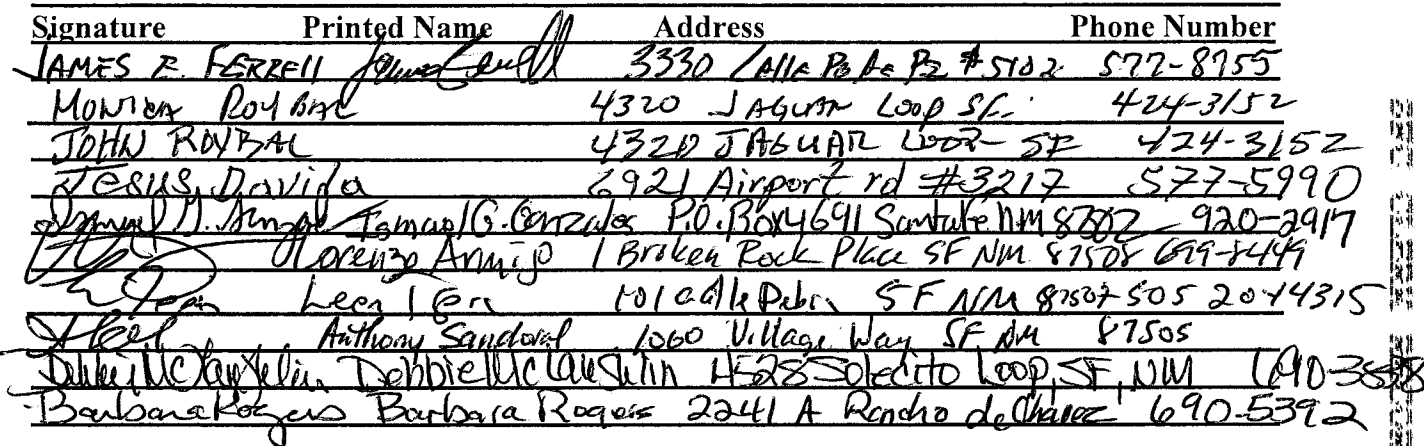 Signature Printed Name Address Phone Number
JAMES E. FERRELL 3330 Calle #5102 577-8755
MONICA ROYBAL 4320 JAGUAR LOOP SF. 424-3152
JOHN ROYBAL 4320 JAGUAR LOOP SF 424-3152
Jesus Davila 6921 Airport rd #3217 577-5990
Ismael G. Gonzales P.O. Box 4691 Santa Fe NM 920-2917
Lorenzo Armijo 1 Broken Rock Place SF NM 87508 699-8449
101 Calle SF NM 87507 505
Anthony Sandoval 1060 Village Way SF NM 87505
Debbie McLaughlin Debbie McLaughlin 4528 Solecito Loop, SF, NM
Barbara Rogers Barbara Rogers 2241 A Rancho de Chavez 690-5392